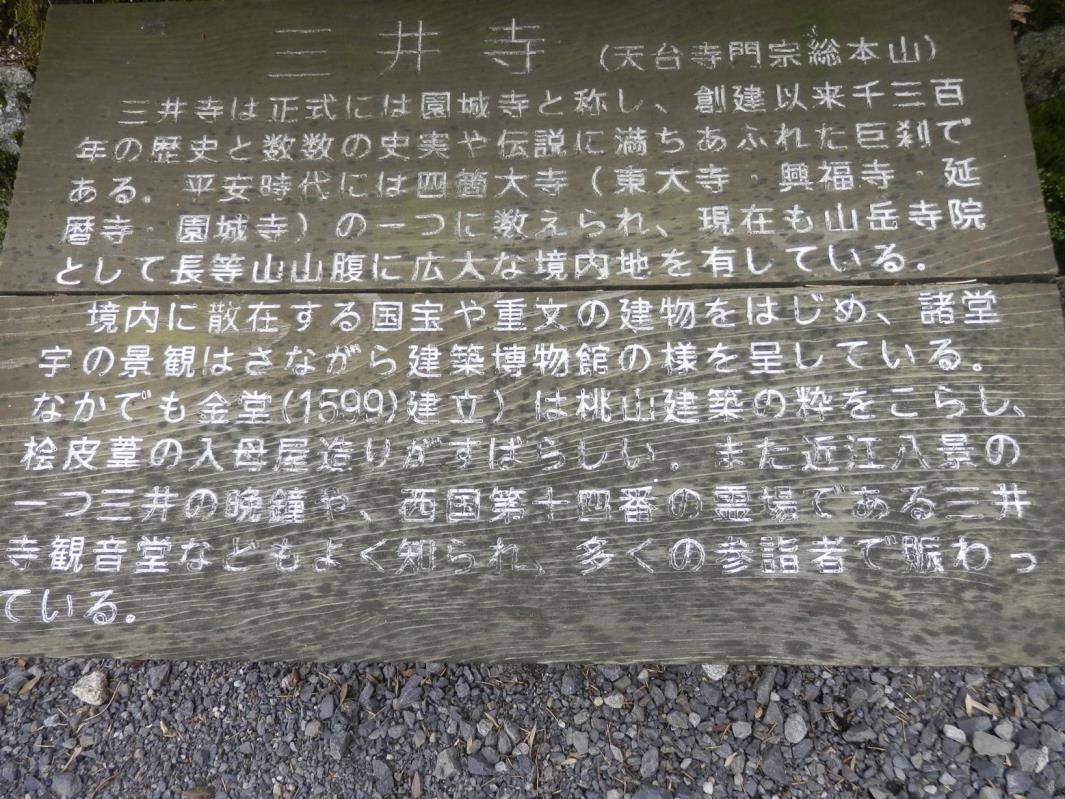 三井寺 (天台寺門宗総本山)
三井寺は正式には園城寺と称し、創建以来千三百
年の歴史と数数の史実や伝説に満ちあふれた巨刹で
ある。平安時代には四箇大寺(東大寺・興福寺・延
暦寺・園城寺)の一つに数えられ、現在も山岳寺院
として長等山山腹に広大な境内地を有している。
境内に散在する国宝や重文の建物をはじめ、諸堂
宇の景観はさながら建築博物館の様を呈している。
なかでも金堂(1599)建立)は桃山建築の粋をこらし、
桧皮葺の入母屋造りがすばらしい。また近江八景の
一つ三井の晩鐘や、西国第十四番の霊場である三井
寺観音堂などもよく知られ、多くの参詣者で賑わっ
ている。